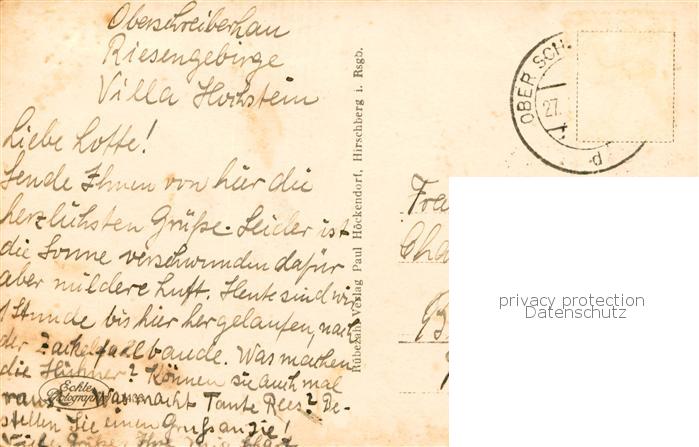 Oberschreiberhau
Riesengebirge
Villa Hochstein
Liebe Lotte!
Sende Ihnen von hier die
herzlichsten Grüße. Leider ist
die Sonne verschwunden dafür
aber mildere Luft. Heute sind wir
1 Stunde bis hier hergelaufen, nach
der Zackelfallbaude. Was machen
die Hühner? Können sie auch mal
raus? Was macht Tante Rees? Be-
stellen Sie einen Gruß an sie!
Viele Grüße Ihre
Echte
Photographie
Rübezahl-Verlag Paul Höckendorf, Hirschberg i. Rsgb.
OBER SCH
27.
d
Frau
Cha
privacy protection
Datenschutz